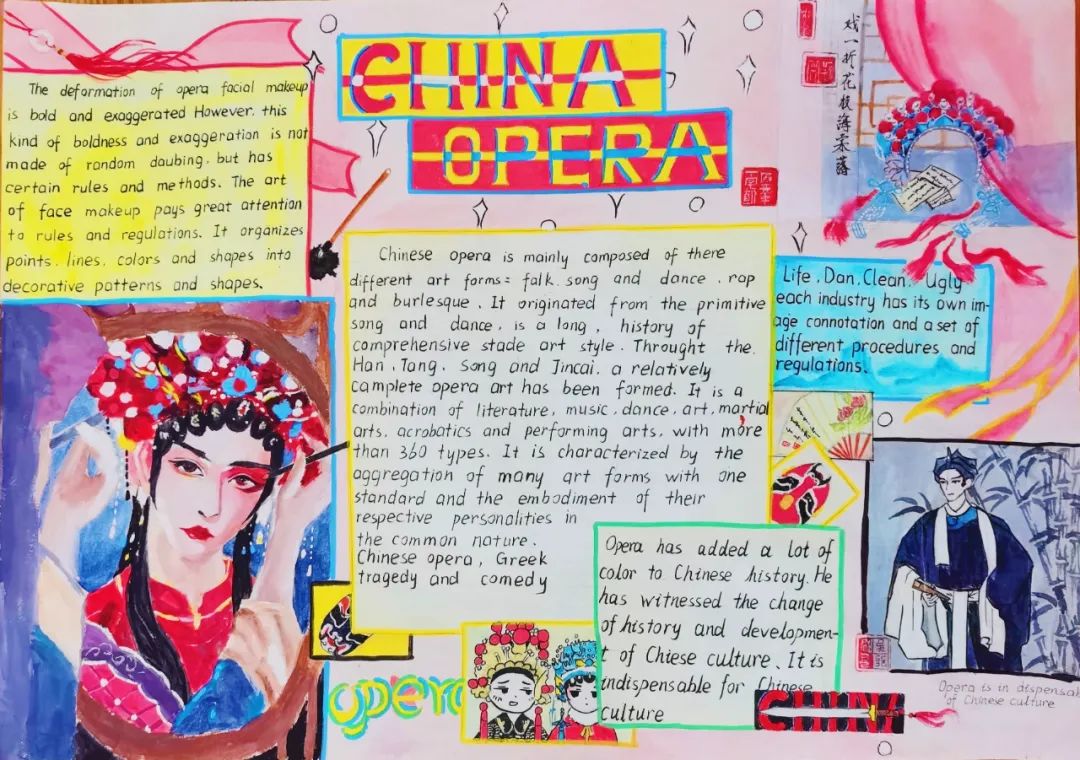 CHINA
OPERA
The deformation of opera facial makeup
is bold and exaggerated However, this
kind of boldness and exaggeration is not
made of random daubing, but has
certain rules and methods. The art
of face makeup pays great attention
to rules and regulations. It organizes
points, lines, colors and shapes into
decorative patterns and shapes.
Chinese opera is mainly composed of there
different art forms: falk song and dance, rap
and burlesque. It originated from the primitive
song and dance, is a long, history of
comprehensive stade art style. Throught the
Han, Tang, Song and Jincai, a relatively
camplete opera art has been formed. It is a
combination of literature, music, dance, art, martial
arts, acrobatics and performing arts, with more
than 360 types. It is characterized by the
aggregation of many art forms with one
standard and the embodiment of their
respective personalities in
the common nature.
Chinese opera, Greek
tragedy and comedy
戏一折花
落
Life, Dan, Clean, Ugly
each industry has its own im-
age connotation and a set of
different procedures and
regulations.
Opera has added a lot of
color to Chinese history. He
has witnessed the change
of history and developmen-
t of Chiese culture. It is
indispensable for Chinese
culture
opera
CHINA
Opera is in dispensab
of Chinese culture